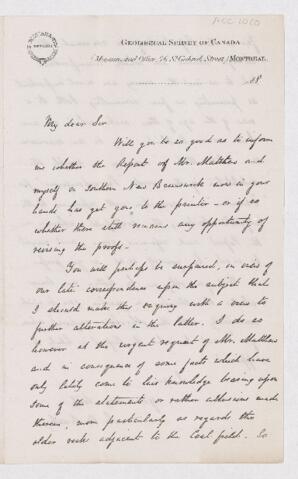 ACC 1060
GEOLOGICAL SURVEY OF CANADA
Museum and Office, 76 St Gabriel Street, MONTREAL.
188
My dear Sir
Will you be so good as to inform
me whether the Report of Mr. Matthew and
myself on Southern New Brunswick now in your
hands has yet gone to the printer - or if so
whether there still remains any opportunity of
revising the proofs -
You will perhaps be surprised, in view of
our late correspondence upon the subject that
I should make this enquiry with a view to
further alterations in the latter. I do so
however at the urgent request of Mr. Matthew
and in consequence of some facts which have
only lately come to his knowledge bearing upon
some of the statements or rather allusions made
therein, more particularly as regards the
older rocks adjacent to the Coal field. So